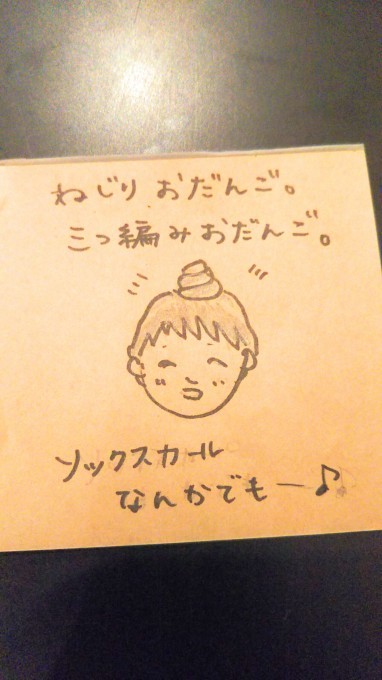 ねじり おだんご。
三つ編みおだんご。
ソックスカール
なんかでもー♪